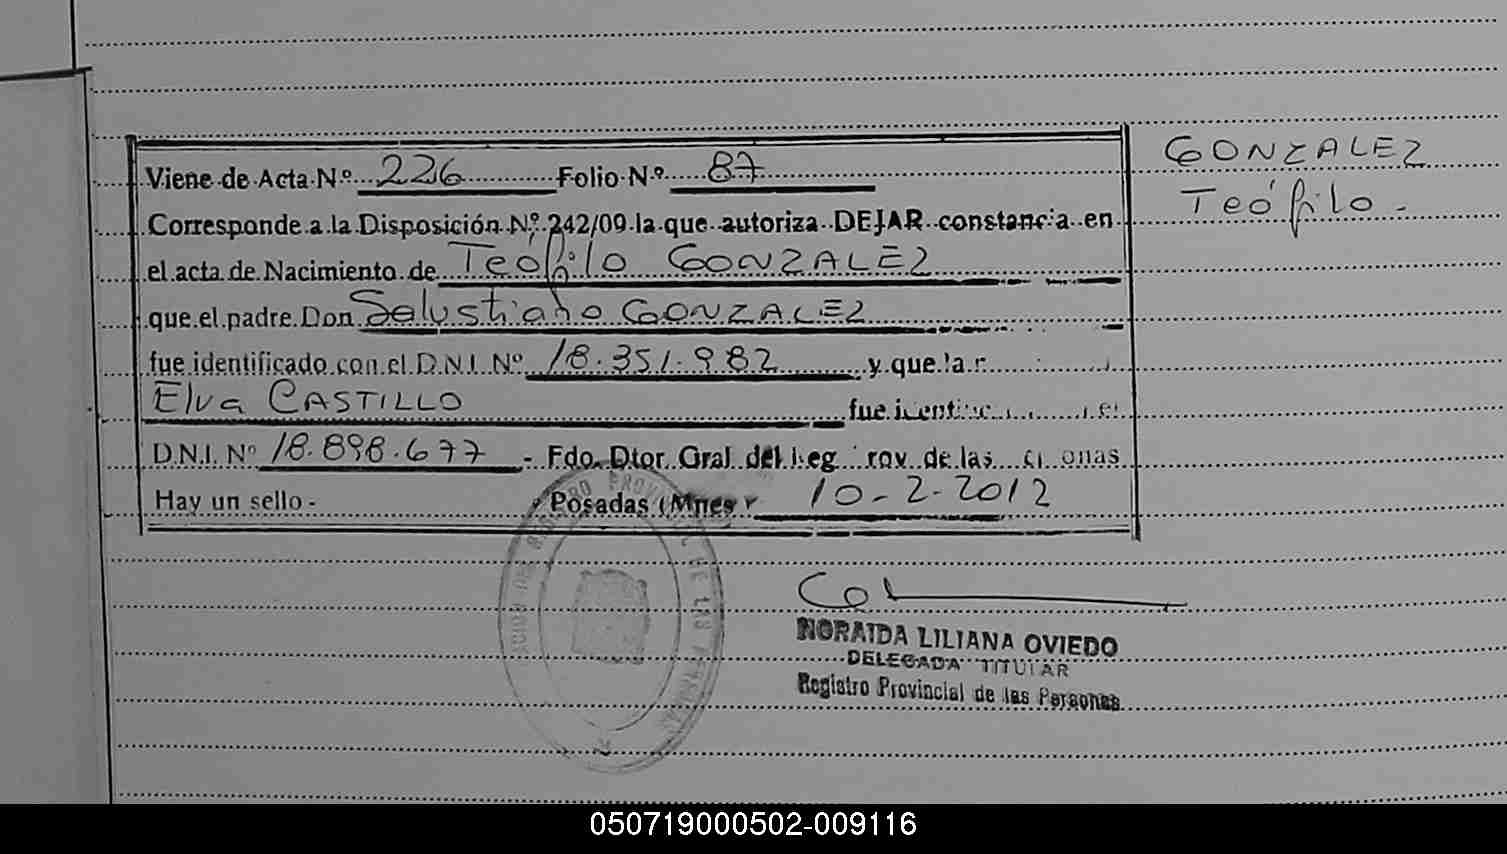 Viene de Acta Nº 226 Folio Nº 87
Corresponde a la Disposición Nº 242/09 la que autoriza DEJAR constancia en
el acta de Nacimiento de Teófilo GONZALEZ
que el padre Don Salustiano GONZALEZ
fue identificado con el D.N.I. Nº 18.351.982 y que la
Elva CASTILLO fue
D.N.I. Nº 18.898.677 - Fdo. Dtor Gral del de las
Hay un sello - Posadas (Mnes 10-2-2012
GONZALEZ
Teófilo -
NORAIDA LILIANA OVIEDO
DELEGADA TITULAR
Registro Provincial de las Personas
050719000502-009116